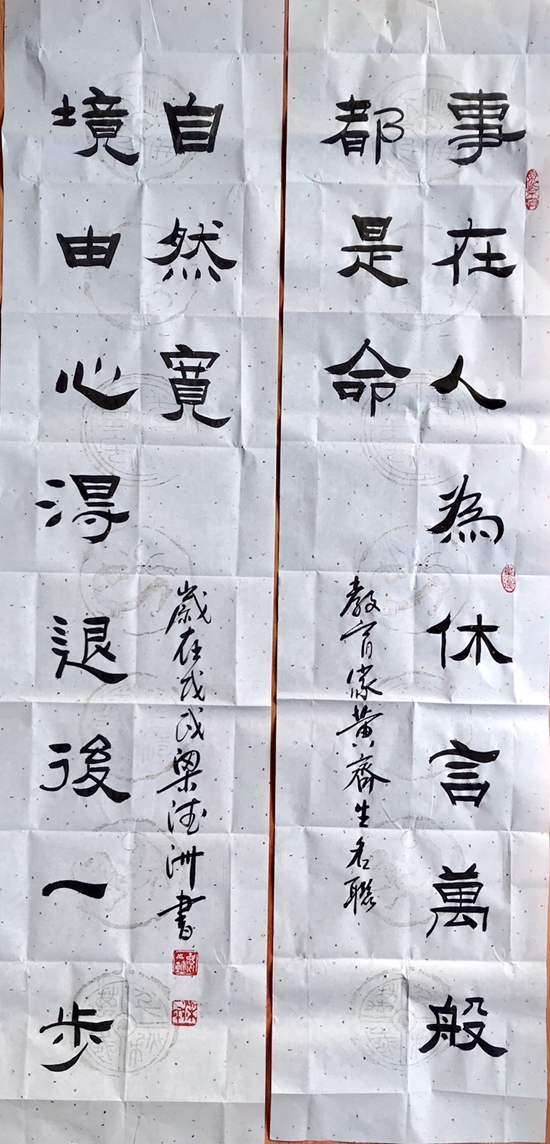 事在人為休言萬般
都是命
教育家黄齊生名聯
境由心得退後一步
自然寬
歲在戊戌梁德洲書